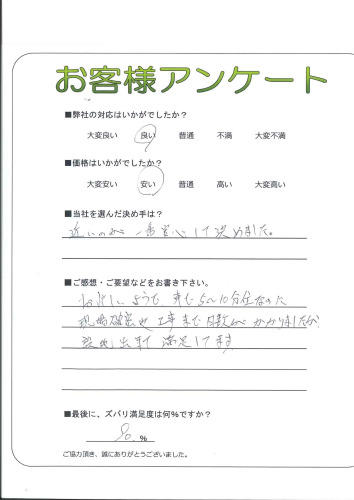 お客様アンケート
■弊社の対応はいかがでしたか？
大変良い 良い 普通 不満 大変不満
■価格はいかがでしたか？
大変安い 安い 普通 高い 大変高い
■当社を選んだ決め手は？
近いのが一番安心して決めました。
■ご感想・ご要望などをお書き下さい。
車で5〜10分位なのに
現場確認や工事まで日数がかかりましたが
出来て満足してます
■最後に、ズバリ満足度は何％ですか？
90 %
ご協力頂き、誠にありがとうございました。